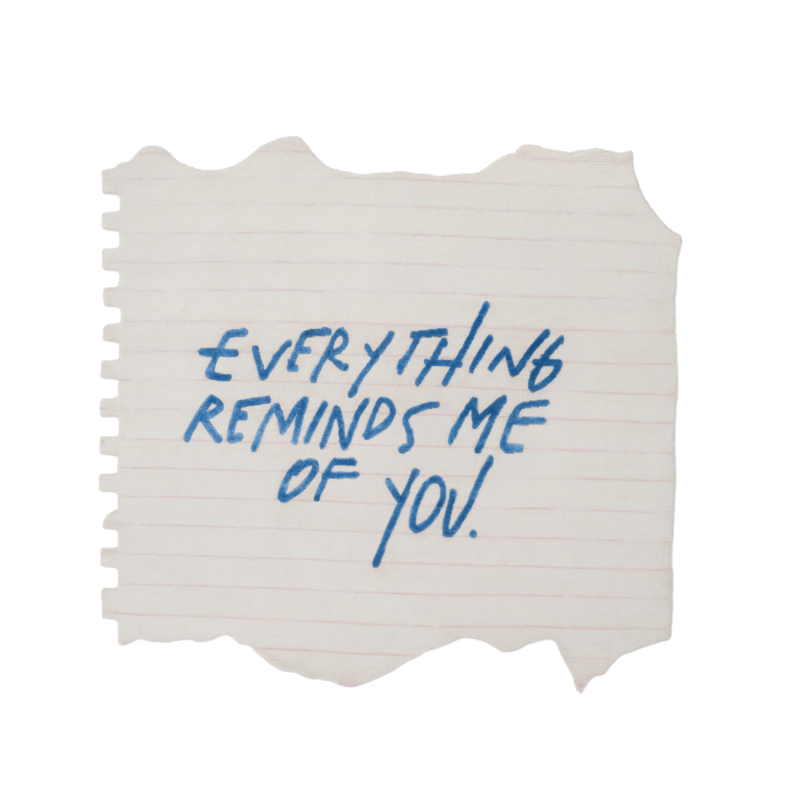 EVERYTHING
REMINDS ME
OF YOU.